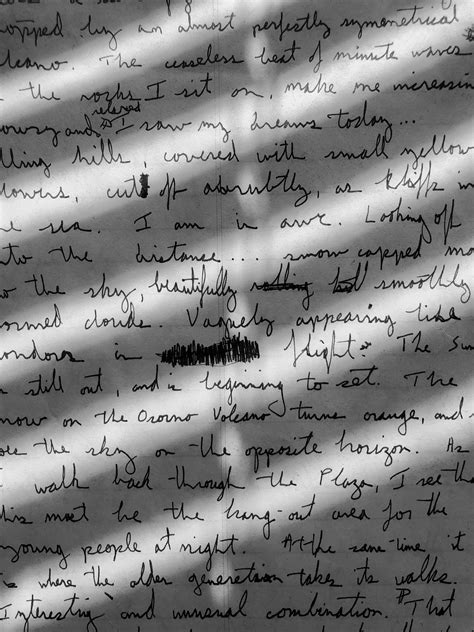 topped by an almost perfectly symmetrical
olcano. The ceaseless beat of minute waves
the rocks I sit on, make me increasin
relaxed
rowsy and I saw my dreams today...
lling hills, covered with small yellow
lowers, cut off abrubtly, as kliffs in
e sea. I am in awe. Looking off
nto the distance... snow capped mo
o the sky, beautifully rolling smoothly
ormed clouds. Vaguely appearing like
ondors in flight. The Sun
still out, and is beginning to set. The
now on the Osorno Volcano turns orange, and
oes the sky on the opposite horizon. As
I walk back through the Plaza, I see tha
his must be the hang-out area for the
young people at night. At the same time, it
is where the older generation takes its walks.
Interesting and unusual combination. That